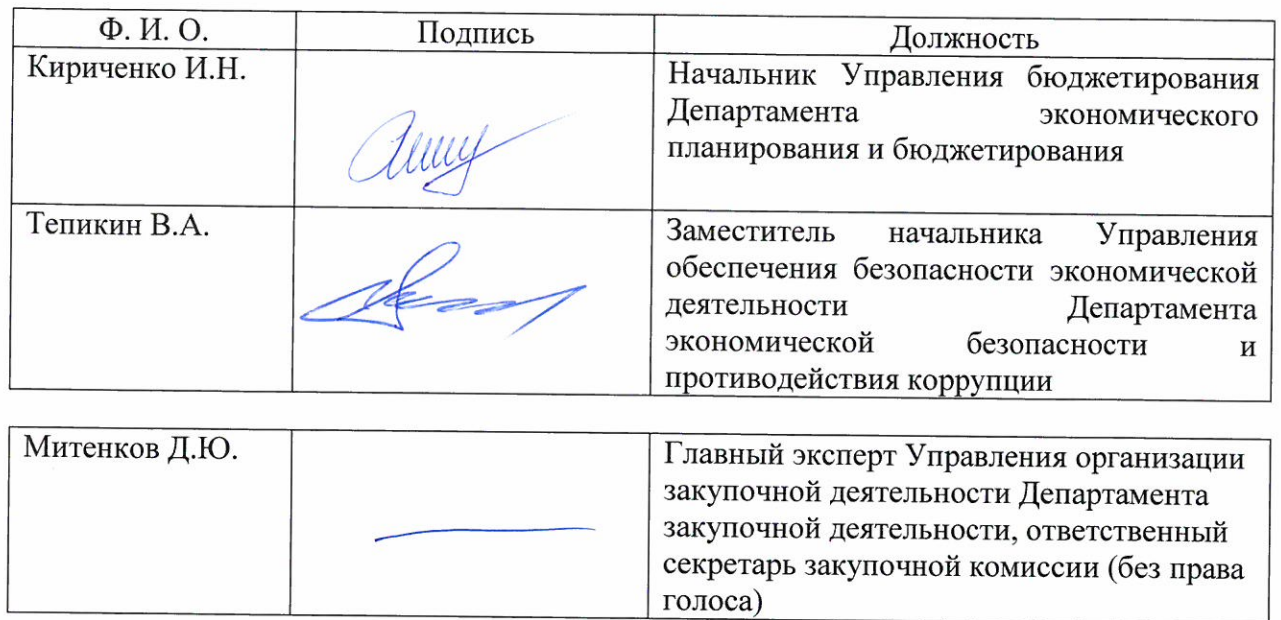 Ф. И. О. Подпись Должность
Кириченко И.Н. Начальник Управления бюджетирования
Департамента экономического
планирования и бюджетирования
Тепикин В.А. Заместитель начальника Управления
обеспечения безопасности экономической
деятельности Департамента
экономической безопасности и
противодействия коррупции
Митенков Д.Ю. Главный эксперт Управления организации
закупочной деятельности Департамента
закупочной деятельности, ответственный
секретарь закупочной комиссии (без права
голоса)